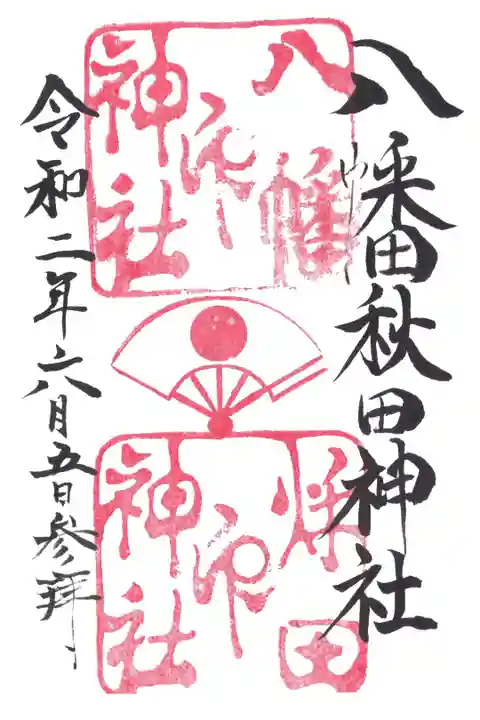 八幡秋田神社
八幡
神社
印
秋田
神社
印
令和二年六月五日参拝